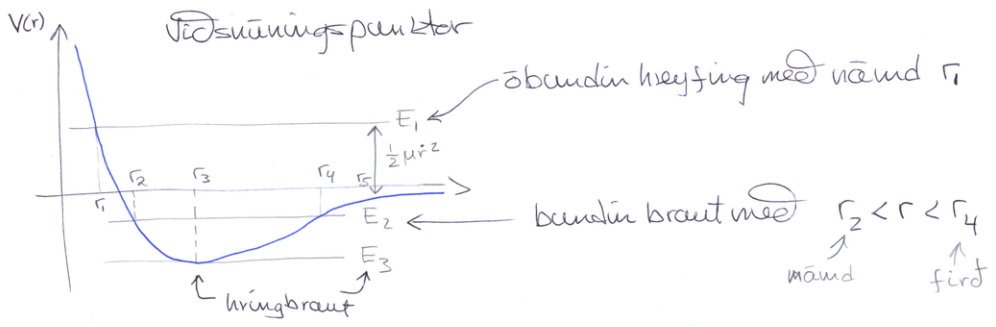 V(r)
Viðsnúningspunktar
óbundin hreyfing með nánd r₁
E₁
½μṙ²
r₁
r₂
r₃
r₄
r₅
E₂
bundin braut með r₂ < r < r₄
nánd
firð
E₃
hringbraut